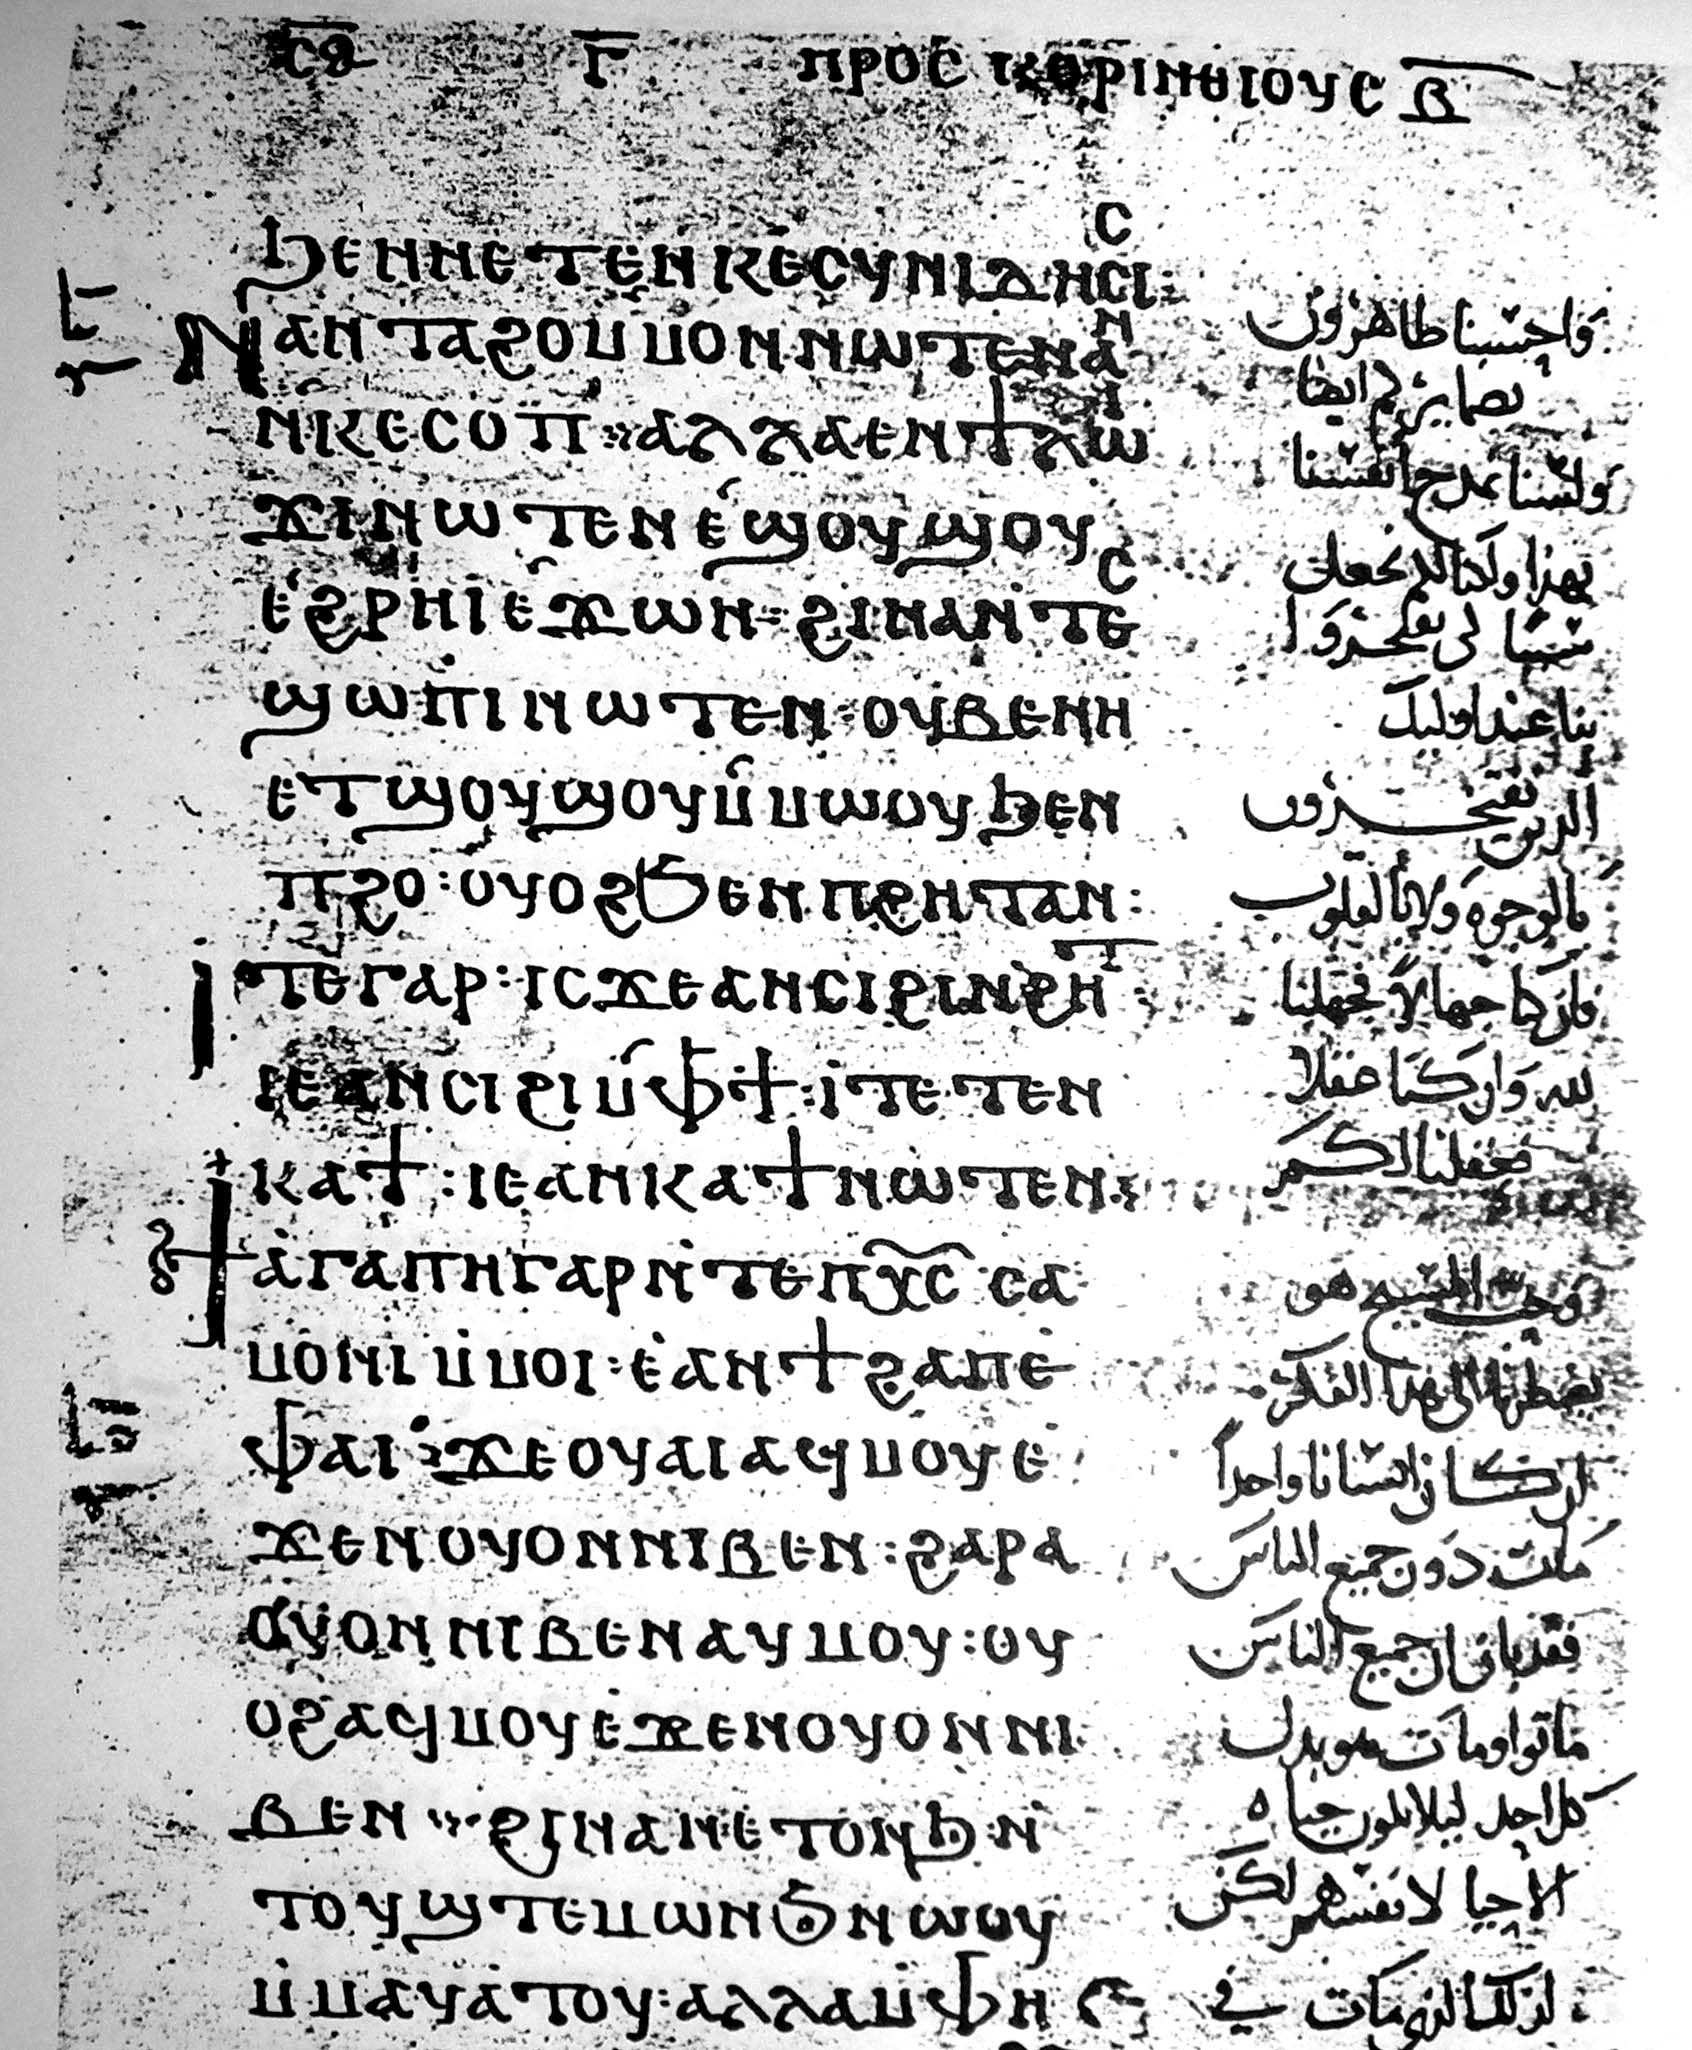 ⲥ̅ⲑ̅ ⲅ̅ ⲡⲣⲟⲥ ⲕⲟⲣⲓⲛⲑⲓⲟⲩⲥ ⲃ̅
ϧⲉⲛⲛⲉⲧⲉⲛⲕⲉⲥⲩⲛⲓⲇⲏⲥⲓⲥ:
ⲛⲁⲛⲧⲁϩⲟⲙⲙⲟⲛⲛⲱⲧⲉⲛⲁⲛ
ⲛⲕⲉⲥⲟⲡ: ⲁⲗⲗⲁⲉⲛϯⲗⲱⲓ
ϫⲓⲛⲱⲧⲉⲛⲉ̀ϣⲟⲩϣⲟⲩ
ⲉ̀ϩⲣⲏⲓⲉ̀ϫⲱⲛ: ϩⲓⲛⲁⲛ̀ⲧⲉⲥ
ϣⲱⲡⲓⲛⲱⲧⲉⲛ: ⲟⲩⲃⲉⲛⲏ
ⲉⲧϣⲟⲩϣⲟⲩⲙ̀ⲙⲱⲟⲩϧⲉⲛ
ⲡϩⲟ: ⲟⲩⲟϩϧⲉⲛⲡϩⲏⲧⲁⲛ:
ⲓⲧⲉⲅⲁⲣ: ⲓⲥϫⲉⲁⲛⲥⲓϩⲓⲛϩⲏⲧ:
ⲓⲉⲁⲛⲥⲓϩⲓⲙ̀ⲫϯ: ⲓⲧⲉⲧⲉⲛ
ⲕⲁϯ: ⲓⲉⲁⲛⲕⲁϯⲛⲱⲧⲉⲛ:
ϯⲁ̀ⲅⲁⲡⲏⲅⲁⲣⲛ̀ⲧⲉⲡⲭ̅ⲥ̅ ⲥⲁ
ⲙⲟⲛⲓⲙ̀ⲙⲟⲓ: ⲉ̀ⲁⲛϯϩⲁⲡⲉ̀
ⲫⲁⲓ: ϫⲉⲟⲩⲁⲓⲁϥⲙⲟⲩⲉ̀
ϫⲉⲛⲟⲩⲟⲛⲛⲓⲃⲉⲛ: ϩⲁⲣⲁ
ⲁⲩⲟⲛⲛⲓⲃⲉⲛⲁⲩⲙⲟⲩ: ⲟⲩ
ⲟϩⲁϥⲙⲟⲩⲉ̀ϫⲉⲛⲟⲩⲟⲛⲛⲓ
ⲃⲉⲛ: ϩⲓⲛⲁⲛⲉⲧⲟⲛϧ: ⲛ̀
ⲧⲟⲩϣⲧⲉⲙⲱⲛϧⲛⲱⲟⲩ
ⲙ̀ⲙⲁⲩⲁⲧⲟⲩ: ⲁⲗⲗⲁⲙ̀ⲫⲏ
طاهرون
ايضا
ولسنا نمدح انفسنا
بهذا ولكنا
لكي تفتخروا
بنا عند اوليك
الذين يفتخرون
بالوجوه ولا بالقلوب
فان كنا جهالا فجهلنا
لله وان كنا عقلا
فعقلنا لكم
وحب المسيح هو
يضطرنا الى هذا الفكر
ان كان انسانا واحدا
مات دون جميع الناس
فقد بان ان جميع الناس
ماتوا ومات هو بدل
كل احد ليلا يكون حياه
الاحيا لانفسهم لكن
مات في